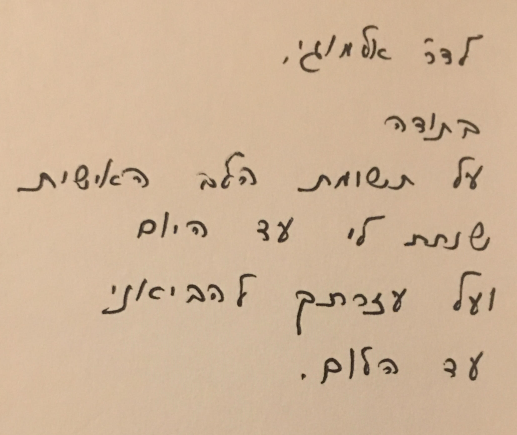 לדר' אלמוגי,
בתודה
על תשומת הלב האישית
שנתת לי עד היום
ועל עזרתך להביאני
עד הלום.